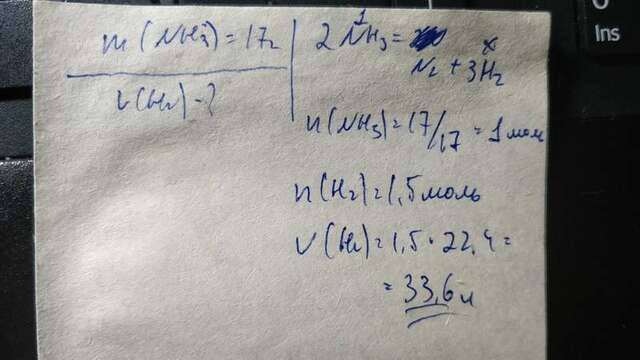 m(NH3)=17г
V(H2)-?
1 x
2NH3=
N2+3H2
n(NH3)=17/17=1моль
n(H2)=1,5моль
V(H2)=1,5·22,4=
=33,6л
Ins